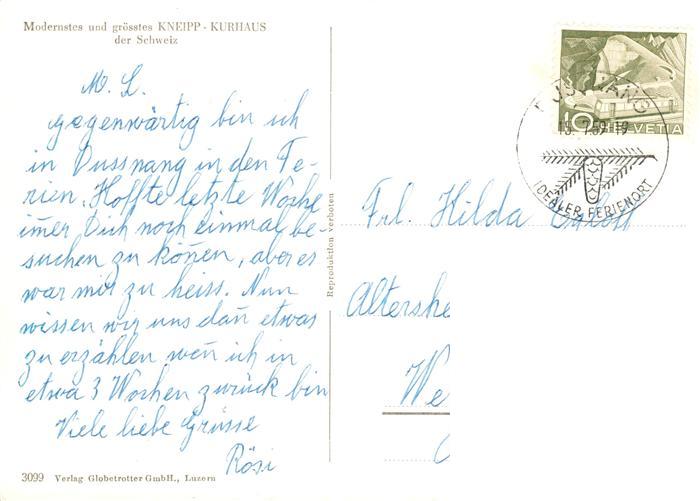 Modernstes und grösstes KNEIPP - KURHAUS
der Schweiz
M. L.
gegenwärtig bin ich
in Dussnang in den Fe-
rien. Hoffte letzte Woche
imer Dich noch einmal be-
suchen zu könen, aber es
war mir zu heiss. Nun
wissen wir uns dan etwas
zu erzählen wen ich in
etwa 3 Wochen zurück bin
Viele liebe Grüsse
Rösi
3099 Verlag Globetrotter GmbH., Luzern
Reproduktion verboten
10 HELVETIA
DUSSNANG
15. 7. 59 - 19
IDEALER FERIENORT
Frl. Hilda
Altershe
We